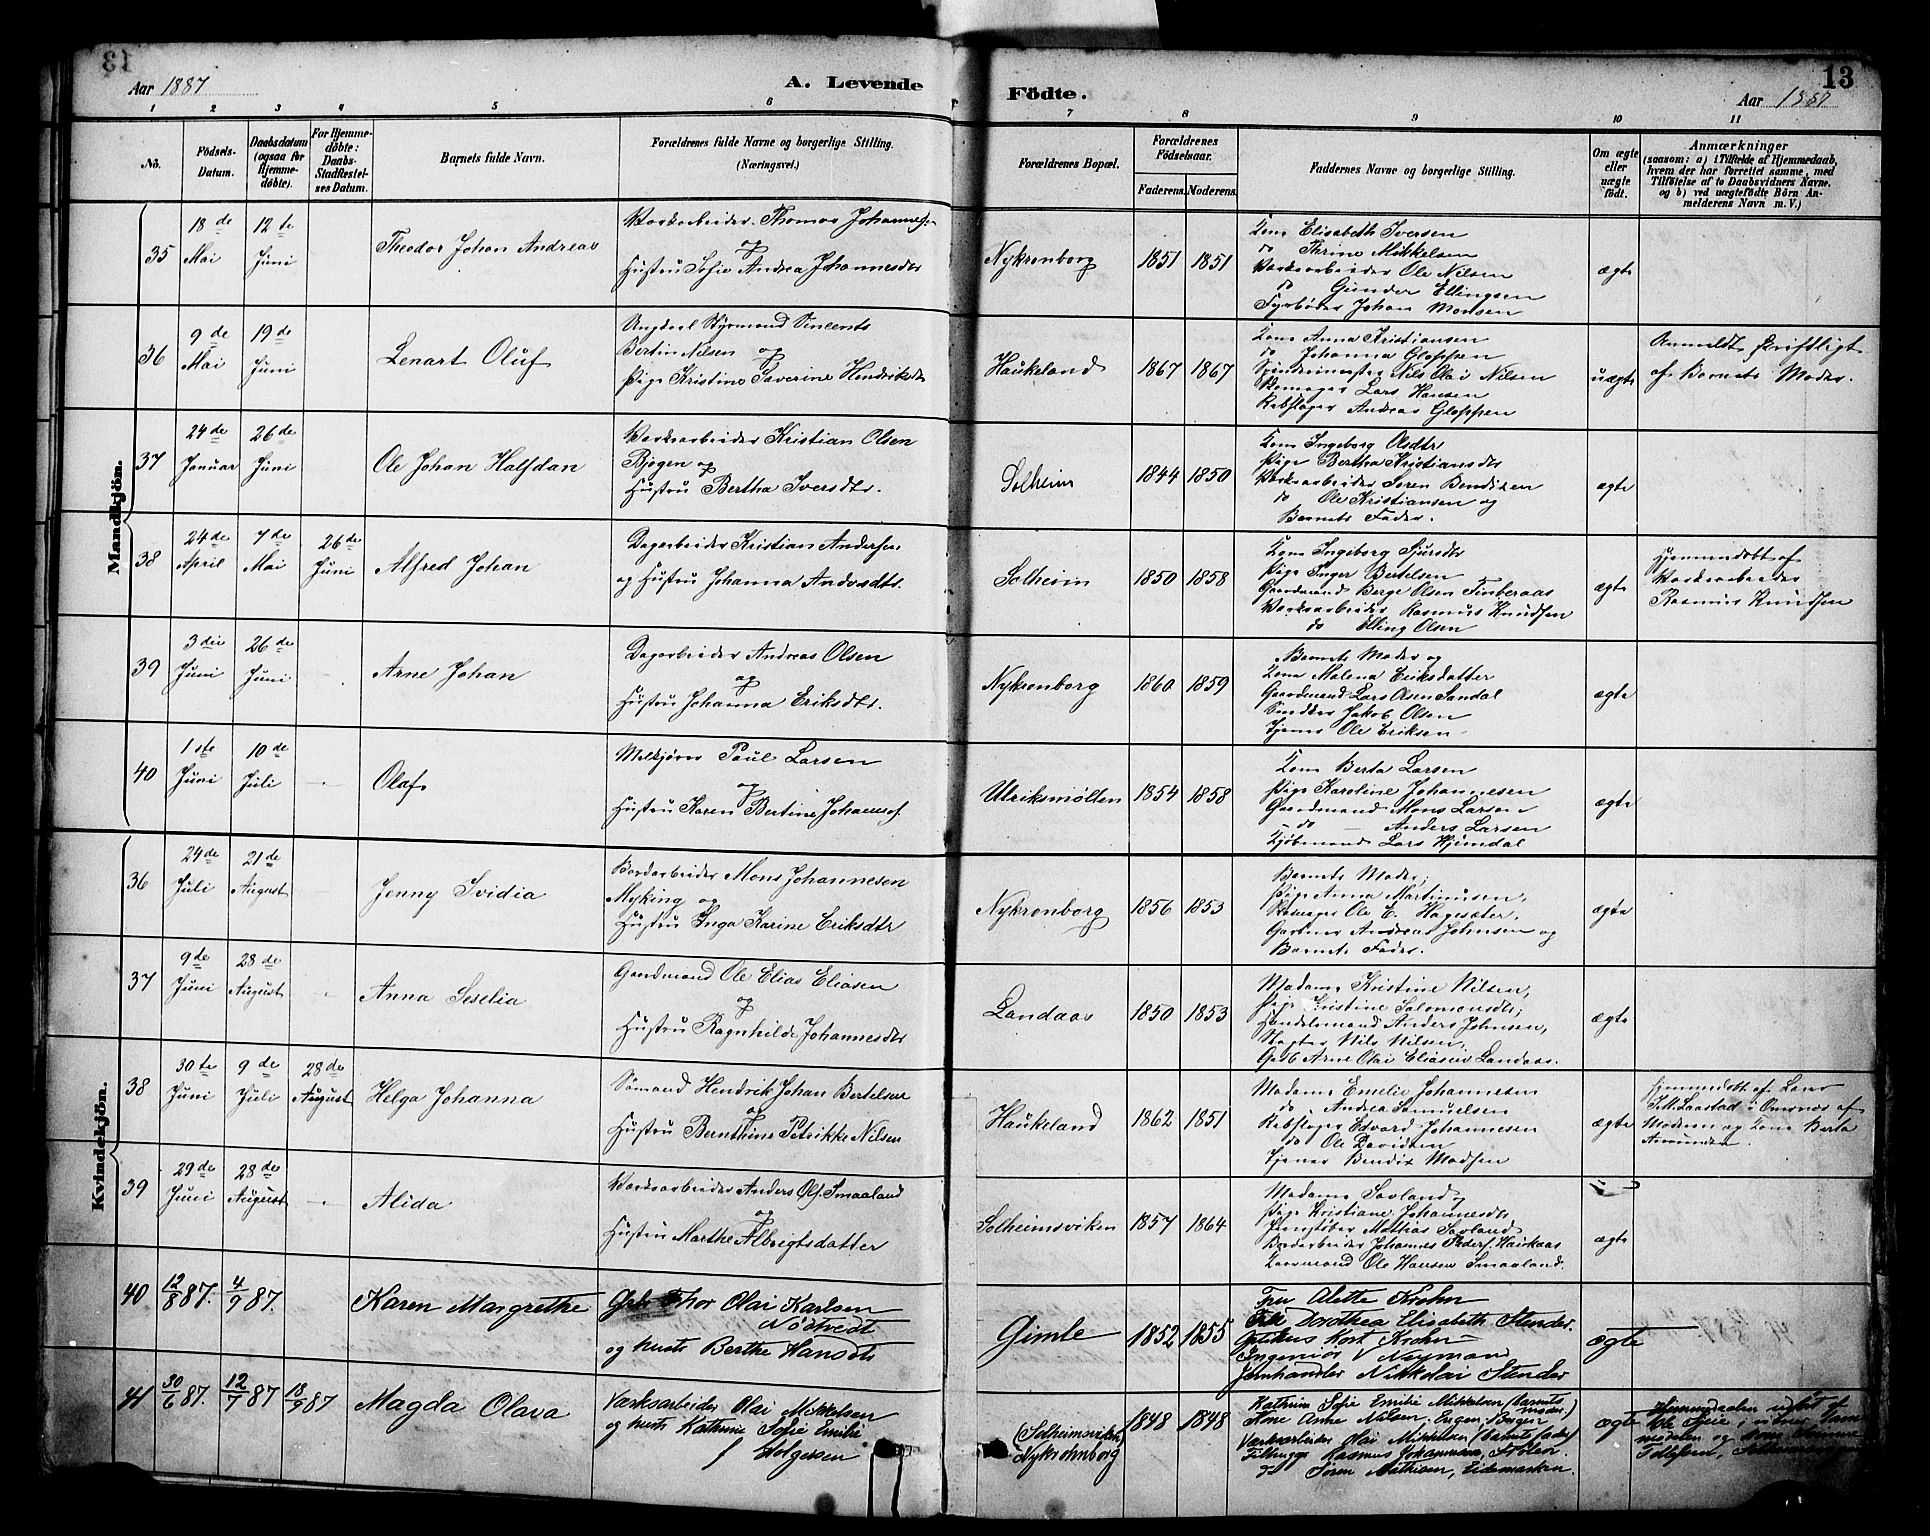 13
Aar 1887
A. Levende
Födte.
13
Aar 1887
1 2 3 4 5 6 7 8 9 10 11
No.
Födsels-Datum.
Daabsdatum (ogsaa for Hjemme-döbte).
For Hjemme-döbte: Daabs-Stadfæstel-ses Datum.
Barnets fulde Navn.
Forældrenes fulde Navne og borgerlige Stilling.
(Næringsvei.)
Forældrenes Bopæl.
Forældrenes Födselsaar.
Faderens. Moderens.
Faddernes Navne og borgerlige Stilling.
Om ægte eller uægte födt.
Anmærkninger
(saasom: a) i Tilfælde af Hjemmedaab,
hvem der har forrettet samme, med
Tilföielse af to Daabsvidners Navne.
og b) ved uægtefödte Börn An-
melderens Navn m. V.)
Mandkjön.
35 18de Mai 12te Juni Theodor Johan Andreas
Værksarbeider Thomas Johannes.
og
Hustru Sofie Andrea Johannesdtr
Nykronborg 1851 1851
Kone Elisabeth Iversen
do Thrine Mikkelsen
Værksarbeider Ole Nilsen
do Gunder Ellingsen
Fyrböder Johan Monsen
ægte
36 9de Mai 19de Juni Lenart Oluf
Ungkarl Styrmand Vincents
Bertin Nilsen og
Pige Kristine Severine Hendriksdtr
Haukeland 1867 1867
Kone Anna Kristiansen
do Johanna Gloppen
Nils Olai Nilsen
Lars Hansen
Rebslager Andreas Gloppen
uægte
Anmeldt skriftligt
af Barnets Moder.
37 24de Januar 26de Juni Ole Johan Halfdan
Værksarbeider Kristian Olsen
Bjogen og
Hustru Bertha Iversdtr.
Solheim 1844 1850
Kone Ingeborg Olsdtr
Pige Bertha Kristiansdtr
Værksarbeider Sören Bendixen
do Ole Kristiansen og
Barnets Fader.
ægte
38 24de April 7de Mai 26de Juni Alfred Johan
Dagarbeider Kristian Andersen
og Hustru Johanna Andersdtr.
Solheim 1850 1858
Kone Ingeborg Sjursdtr
Pige Inger Bertelsen
Gaardmand Berge Olsen Tinberaas
Værksarbeider Rasmus Knudsen
do Elling Olsen
ægte
Hjemmedöbt af
Værksarbeider
Rasmus Knudsen
39 3die Juni 26de Juni Arne Johan
Dagarbeider Andreas Olsen
og
Hustru Johanna Eriksdtr.
Nykronborg 1860 1859
Barnets Moder og
Kone Malena Eriksdatter
Gaardmand Lars Olsen Sandal
Snedker Jakob Olsen
Tjener Ole Eriksen
ægte
40 1ste Juni 10de Juli Olaf
Melkjörer Paul Larsen
og
Hustru Karen Bertine Johannesd.
Ulriksmölten 1854 1858
Kone Berta Larsen
Pige Karoline Johannesen
Gaardmand Mons Larsen
do Anders Larsen
Kjöbmand Lars Hjemdal
ægte
Kvindekjön.
36 24de Juli 21de August Jenny Ividia
Bordarbeider Mons Johannesen
Myking og
Hustru Inga Karine Eriksdtr
Nykronborg 1856 1853
Barnets Moder,
Pige Anna Martinusen,
Ole E. Hagesæter,
Gartner Andreas Johnsen og
Barnets Fader.
ægte
37 9de Juni 28de August Anna Seselia
Gaardmand Ole Elias Eliasen
og
Hustru Ragnhilde Johannesdtr
Landaas 1850 1853
Madame Kristine Nilsen,
Pige Kristine Salomonsdtr,
Handelsmand Anders Johnsen,
Nils Nilsen,
Gaardb. Arne Olai Eliasen Landaas.
ægte
38 30te Juni 9de Juli 28de August Helga Johanna
Sömand Hendrik Johan Bertelsen
og
Hustru Bernthine Petrikke Nilsen
Haukeland 1862 1851
Madame Emelie Johannesen
do Andrea Samuelsen
Rebslager Edvard Johannesen
do Ole Davidsen
Tjener Bendix Madsen
ægte
Hjemmedöbt af
Laastad i Omernæs af
Moderen og Kone Berta
39 29de Juni 28de August Alida
Værksarbeider Anders Ols. Smaaland
og
Hustru Marthe Albrigtsdatter
Solheimsviken 1857 1864
Madame Sovland,
Pige Kristiane Johannesdtr
Mathias Sovland,
Bordarbeider Johannes Peders. Haukaas
Gaardmand Ole Hansen Smaaland.
ægte
40 12/8 87. 4/9 87. Karen Margrethe
Thor Olai Karlsen
Nödtvedt
og hustr. Berthe Hansdtr
Gimle 1852 1855
Fru Alette Krohn
Frk Dorothea Elisabeth Stender.
Kort Krohn
Ingeniör V Neyman
Jernhandler Nikkolai Stender
ægte
41 30/6 87. 12/7 87 18/9 87 Magda Olava
Værksarbeider Olai Mikkelsen
og hustr. Kathrine Sofie Emilie
f Holgersen
(Solheimsviken) Nykrohnborg 1848 1848
Kathrine Sofie Emilie Mikkelsen (barnets moder.)
Kone Anne Nilsen,
Værksarbeider Olai Mikkelsen (barnets fader)
Rasmus Johannesen,
do Sören Mathisen, Eidemarken.
ægte
Hjemmedaaben udfört af
moderen og
Tollefsen,